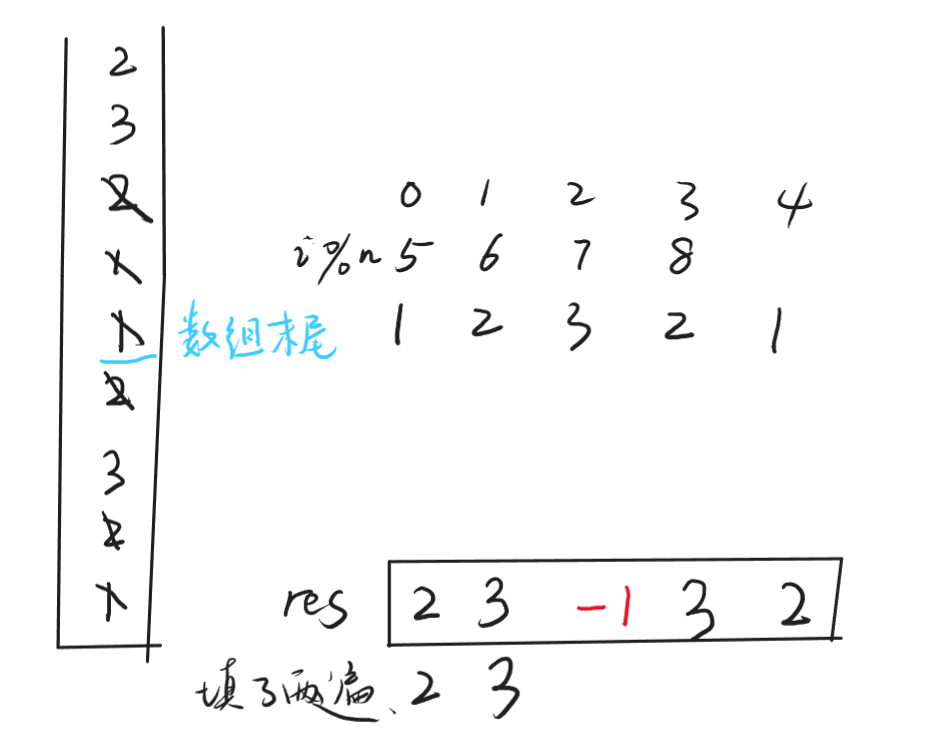 2
3
2
1
1 数组末尾
2
3
2
1
0 1 2 3 4
i%n 5 6 7 8
1 2 3 2 1
res 2 3 -1 3 2
填了两遍、 2 3